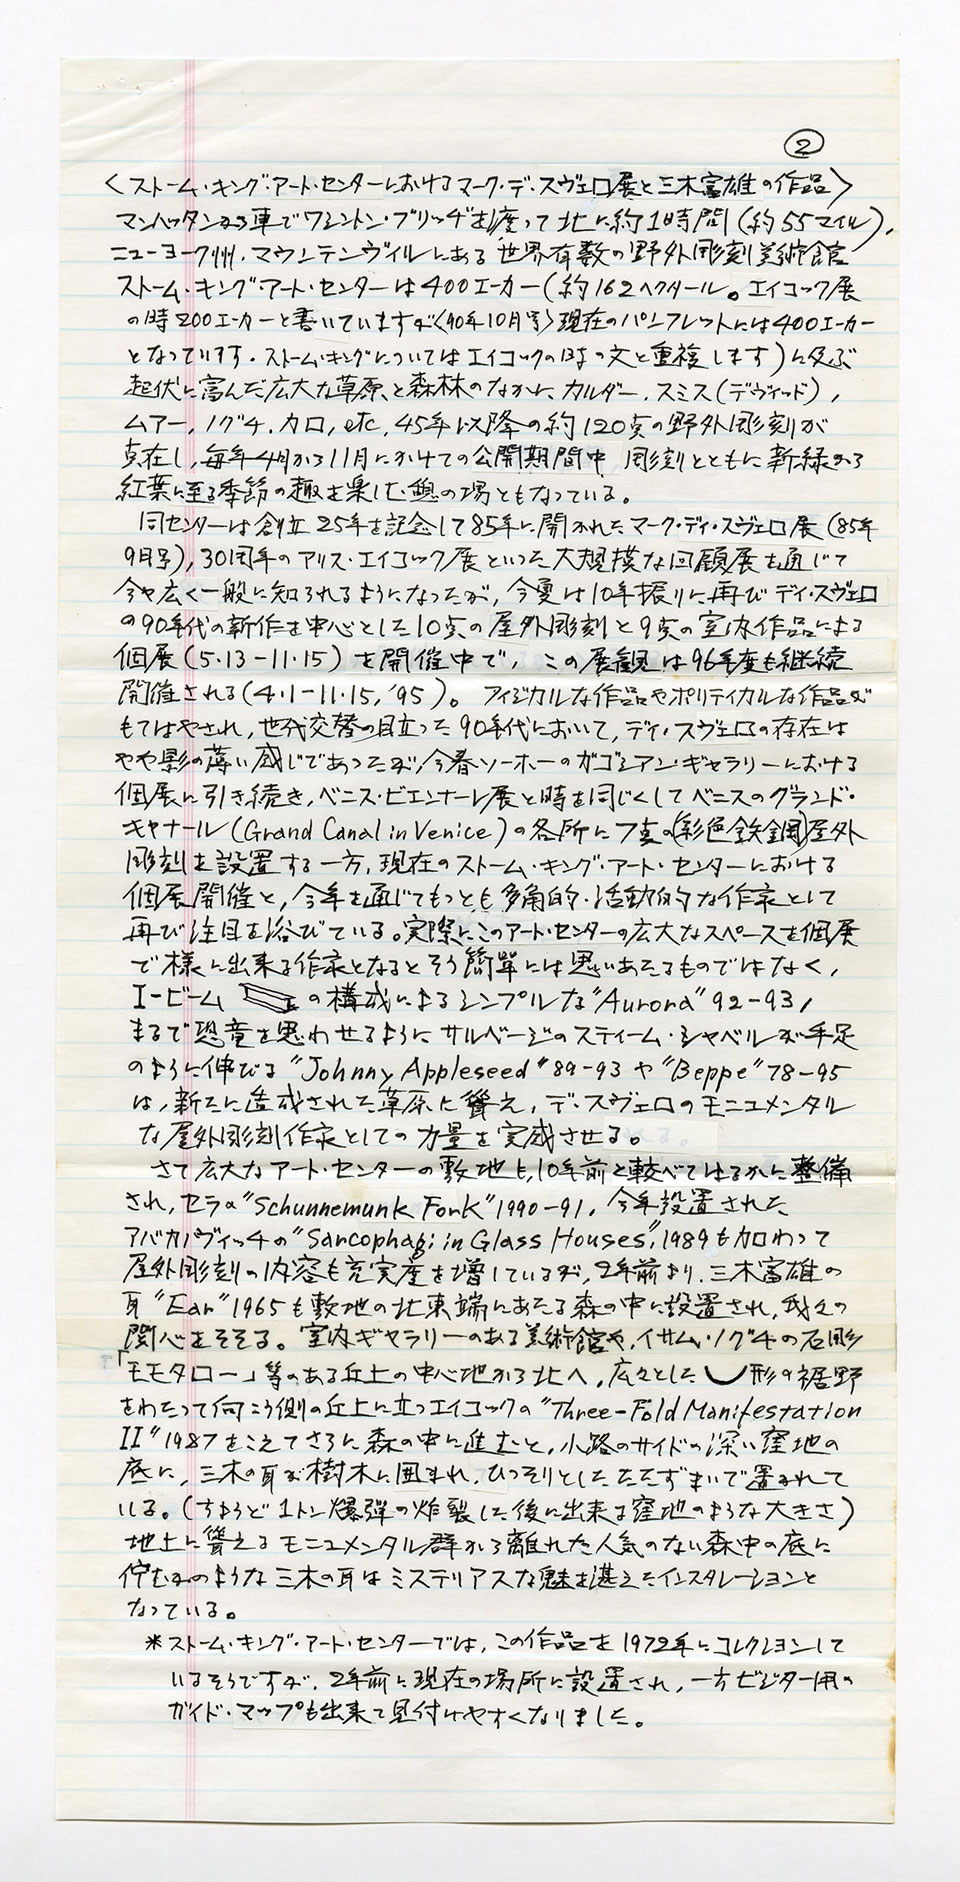 ②
〈ストーム・キング・アート・センターにおけるマーク・デ・スヴェロ展と三木富雄の作品〉
マンハッタンから車でワシントン・ブリッヂを渡って北に約1時間(約55マイル),
ニューヨーク州・マウンテンヴィルにある世界有数の野外彫刻美術館
ストーム・キング・アート・センターは400エーカー(約162ヘクタール。エイコック展
の時200エーカーと書いていますが〈90年10月号〉現在のパンフレットには400エーカー
となっています.ストーム・キングについてはエイコックの時の文と重複します)に及ぶ
起伏に富んだ広大な草原と森林のなかに,カルダー,スミス(デヴィッド),
ムアー,ノグチ,カロ,etc,45年以降の約120点の野外彫刻が
点在し,毎年4月から11月にかけての公開期間中 彫刻とともに新緑から
紅葉に至る季節の趣を楽しむ憩の場ともなっている。
同センターは創立25年を記念して85年に開かれたマーク・ディ・スヴェロ展(85年
9月号),30周年のアリス・エイコック展といった大規模な回顧展を通じて
今や広く一般に知られるようになったが,今夏は10年振りに再びディ・スヴェロ
の90年代の新作を中心とした10点の屋外彫刻と9点の室内作品による
個展(5・13-11・15)を開催中で,この展観は96年度も継続
開催される(4・1-11・15,'95)。フィジカルな作品やポリティカルな作品が
もてはやされ,世代交替の目立った90年代において,ディ・スヴェロの存在は
やや影の薄い感じであったが,今春ソーホーのガゴシアン・ギャラリーにおける
個展に引き続き,ベニス・ビエンナーレ展と時を同じくしてベニスのグランド・
キャナール(Grand Canal in Venice)の各所に7点の(彩色鉄鋼)屋外
彫刻を設置する一方,現在のストーム・キング・アート・センターにおける
個展開催と,今年を通じてもっとも多角的・活動的な作家として
再び注目を浴びている。実際にこのアート・センターの広大なスペースを個展
で様に出来る作家となるとそう簡単には思いあたるものではなく,
I-ビームの構成によるシンプルな"Aurora"92-93,
まるで恐竜を思わせるようにサルベージのスティーム・シャベルが手足
のように伸びる"Johnny Appleseed"89-93や"Beppe"78-95
は,新たに造成された草原に聳え,デ・スヴェロのモニュメンタル
な屋外彫刻作家としての力量を実感させる。
さて広大なアート・センターの敷地も,10年前と較べてはるかに整備
され,セラの"Schunnemunk Fork"1990-91,今年設置された
アバカノヴィッチの"Sarcophagi in Glass Houses",1989も加わって
屋外彫刻の内容も充実度を増しているが,2年前より,三木富雄の
耳"Ear"1965も敷地の北東端にあたる森の中に設置され,我々の
関心をそそる。室内ギャラリーのある美術館や,イサム・ノグチの石彫
「モモタロー」等のある丘上の中心地から北へ,広々とした 形の裾野
をわたって向こう側の丘上に立つエイコックの"Three-Fold Manifestation
II"1987をこえてさらに森の中に進むと,小路のサイドの深い窪地の
底に,三木の耳が樹木に囲まれ,ひっそりとしたたたずまいで置かれて
いる。(ちょうど1トン爆弾の炸裂した後に出来る窪地のような大きさ)
地上に聳えるモニュメンタル群から離れた人気のない森の中の底に
佇むかのような三木の耳はミステリアスな魅を湛えたインスタレーションと
なっている。
*ストーム・キング・アート・センターでは,この作品を1972年にコレクションして
いるそうですが,2年前に現在の場所に設置され,一方ビジター用の
ガイド・マップも出来て見付けやすくなりました。